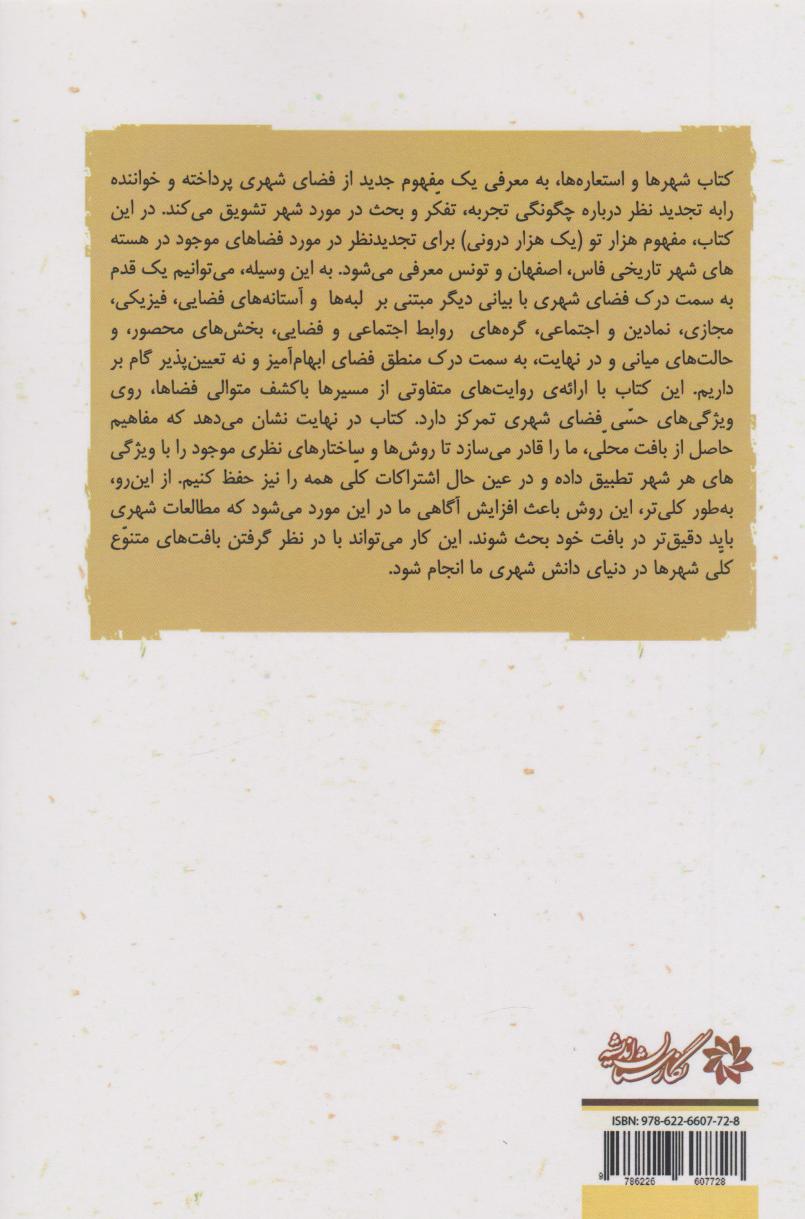 کتاب شهرها و استعاره‌ها، به معرفی یک مفهوم جدید از فضای شهری پرداخته و خواننده
رابه تجدید نظر درباره چگونگی تجربه، تفکّر و بحث در مورد شهر تشویق می‌کند. در این
کتاب، مفهوم هزار تو (یک هزار درونی) برای تجدیدنظر در مورد فضاهای موجود در هسته
های شهر تاریخی فاس، اصفهان و تونس معرفی می‌شود. به این وسیله، می‌توانیم یک قدم
به سمت درک فضای شهری با بیانی دیگر مبتنی بر لبه‌ها و آستانه‌های فضایی، فیزیکی،
مجازی، نمادین و اجتماعی، گره‌های روابط اجتماعی و فضایی، بخش‌های محصور، و
حالت‌های میانی و در نهایت، به سمت درک منطق فضای ابهام‌آمیز و نه تعیین‌پذیر گام بر
داریم. این کتاب با ارائه‌ی روایت‌های متفاوتی از مسیرها باکشف متوالی فضاها، روی
ویژگی‌های حسّی فضای شهری تمرکز دارد. کتاب در نهایت نشان می‌دهد که مفاهیم
حاصل از بافت محلّی، ما را قادر می‌سازد تا روش‌ها و ساختارهای نظری موجود را با ویژگی
های هر شهر تطبیق داده و در عین حال اشتراکات کلّی همه را نیز حفظ کنیم. از این‌رو،
به‌طور کلی‌تر، این روش باعث افزایش آگاهی ما در این مورد می‌شود که مطالعات شهری
باید دقیق‌تر در بافت خود بحث شوند. این کار می‌تواند با در نظر گرفتن بافت‌های متنوّع
کلّی شهرها در دنیای دانش شهری ما انجام شود.
نگارستان اندیشه
ISBN: 978-622-6607-72-8
9 786226 607728